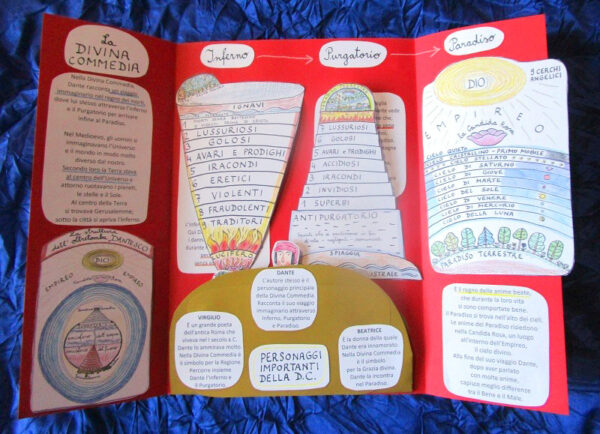 La
DIVINA
COMMEDIA
Nella Divina Commedia,
Dante racconta un viaggio
immaginario nei regni dei morti,
dove ha stesso attraverso l'Inferno
e il Purgatorio per arrivare
infine al Paradiso.
Nel Medioevo, gli uomini si
immaginavano l'Universo
e il mondo in modo molto
diverso dal nostro.
Secondo loro la Terra stava
al centro dell'Universo e
attorno ruotavano i pianeti,
le stelle e il Sole.
Al centro della Terra
si trovava Gerusalemme,
sotto la città si apriva l'Inferno.
La struttura
dell'oltretomba DANTESCO
DIO
EMPIREO
EMPIREO
Inferno
IGNAVI
1 LUSSURIOSI
3 GOLOSI
4 AVARI E PRODIGHI
5 IRACONDI
6 ERETICI
7 VIOLENTI
8 FRAUDOLENTI
9 TRADITORI
LUCIFERO
Purgatorio
7 LUSSURIOSI
6 GOLOSI
5 AVARI e PRODIGHI
4 ACCIDIOSI
3 IRACONDI
2 INVIDIOSI
1 SUPERBI
ANTIPURGATORIO
SPIAGGIA
AUSTRALE
Paradiso
9 CERCHI
ANGELICI
DIO
EMPIREO
la Candida Rosa
CIELO QUIETO
CRISTALLINO - PRIMO MOBILE
CIELO STELLATO
CIELO DI SATURNO
CIELO DI GIOVE
CIELO DI MARTE
CIELO DEL SOLE
CIELO DI VENERE
CIELO DI MERCURIO
CIELO DELLA LUNA
PARADISO TERRESTRE
È il regno delle anime beate,
che durante la loro vita
si sono comportate bene.
Il Paradiso si trova nell'alto dei cieli.
Le anime del Paradiso risiedono
nella Candida Rosa, un luogo
all'interno dell'Empireo,
il cielo divino.
Alla fine del suo viaggio Dante,
dopo aver parlato
con molte anime,
capisce meglio differenze
fra il Bene e il Male.
DANTE
L'autore stesso è il
personaggio principale
della Divina Commedia.
Racconta il suo viaggio
immaginario attraverso
Inferno, Purgatorio
e Paradiso.
VIRGILIO
È un grande poeta
dell'antica Roma che
viveva nel I secolo a.C.
Dante lo ammirava molto.
Nella Divina Commedia è
il simbolo per la Ragione.
Percorre insieme
Dante l'Inferno e
il Purgatorio.
PERSONAGGI
IMPORTANTI
DELLA D.C.
BEATRICE
È la donna della quale
Dante era innamorato.
Nella Divina Commedia
è il simbolo
per la Grazia divina.
Dante la incontra
nel Paradiso.